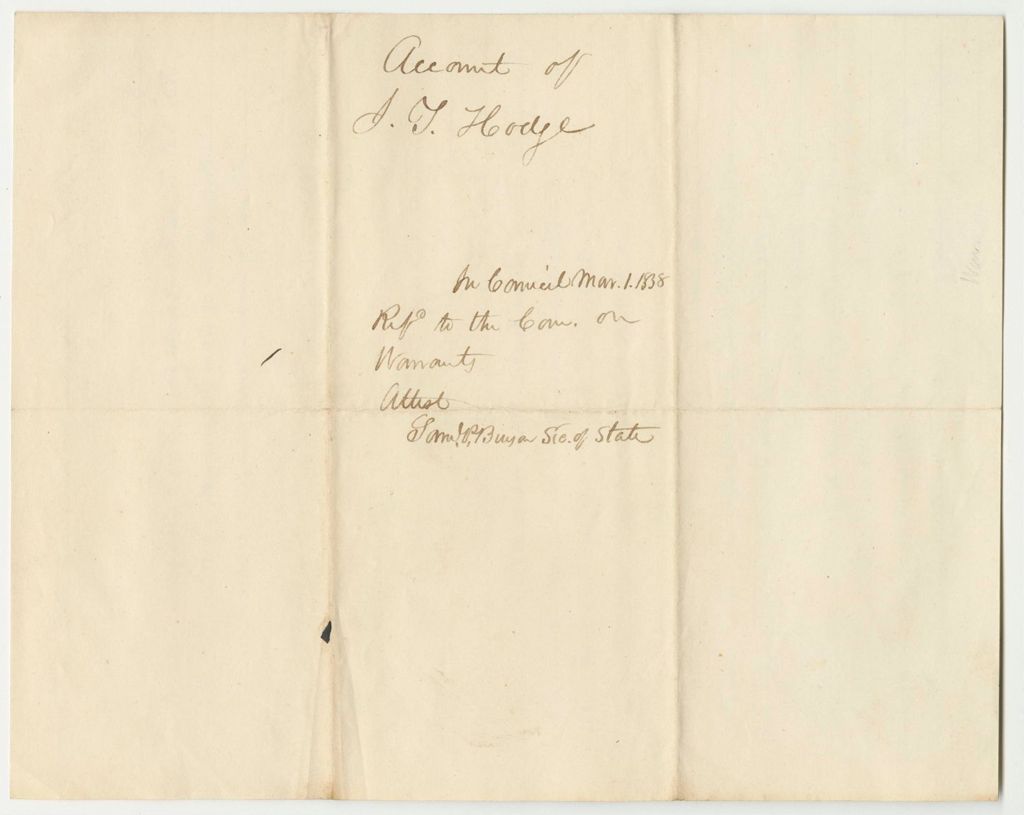 Account of
J. T. Hodge
In Council Mar. 1. 1838
Refd to the Com. on
Warrants
Attest
Saml. P. Benson Sec. of State